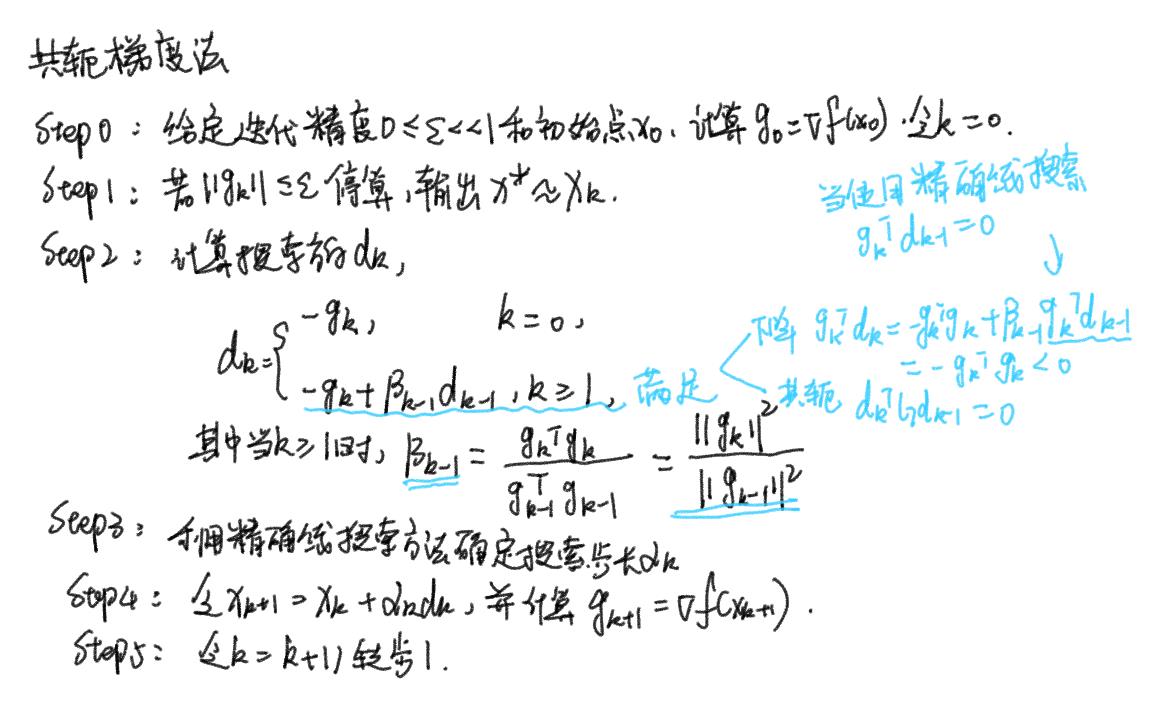 共轭梯度法
Step 0：给定迭代精度0≤ε<<1和初始点x₀. 计算 g₀=∇f(x₀). 令k=0.
Step1：若||gₖ||≤ε 停算，输出 x*≈xₖ.
当使用精确线搜索
gₖᵀdₖ₋₁=0
Step2：计算搜索方向dₖ,
dₖ={ -gₖ, k=0,
-gₖ+βₖ₋₁dₖ₋₁, k≥1,
满足
下降 gₖᵀdₖ=-gₖᵀgₖ+βₖ₋₁gₖᵀdₖ₋₁
=-gₖᵀgₖ<0
共轭 dₖᵀGdₖ₋₁=0
其中当k≥1时, βₖ₋₁ = gₖᵀgₖ / gₖ₋₁ᵀgₖ₋₁ = ||gₖ||² / ||gₖ₋₁||²
Step3：利用精确线搜索方法确定搜索步长αₖ
Step4：令xₖ₊₁=xₖ+αₖdₖ, 并计算 gₖ₊₁=∇f(xₖ₊₁).
Step5：令k=k+1, 转步1.